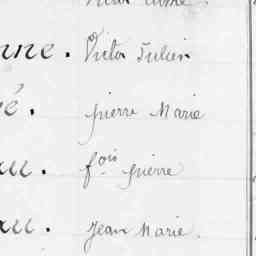 nne. Victor Julien
é. pierre Marie
au. f.ois pierre
au. Jean Marie.